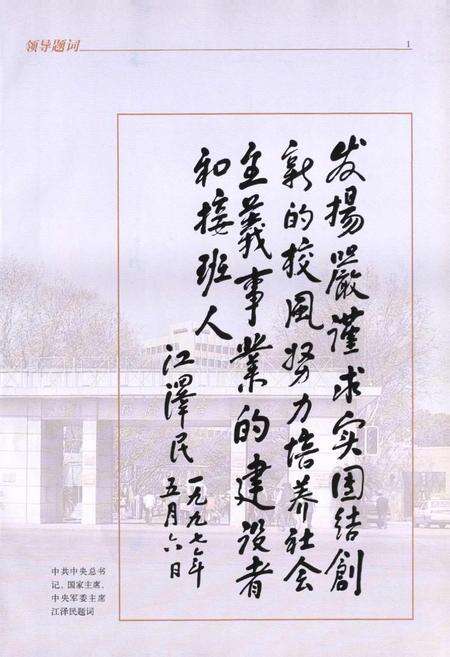 领导题词
1
发揚嚴谨求实团结創
新的校風努力培养社会
主義事業的建设者
和接班人
江澤民
一九九七年
五月六日
中共中央总书
记、国家主席、
中央军委主席
江泽民题词